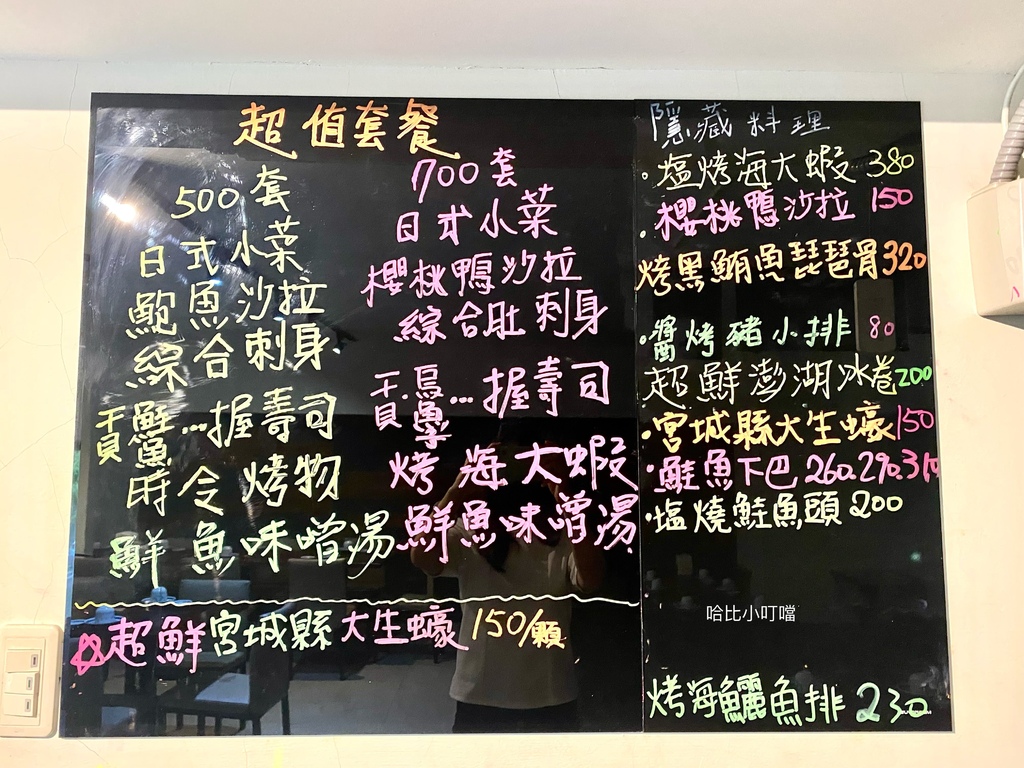 超值套餐
500套
日式小菜
鮑魚沙拉
綜合刺身
干貝 鮭魚...握壽司
時令烤物
鮮魚味噌湯
700套
日式小菜
櫻桃鴨沙拉
綜合肚刺身
干貝...握壽司
烤海大蝦
鮮魚味噌湯
超鮮宮城縣大生蠔 150/顆
隱藏料理
·塩烤海大蝦 380
·櫻桃鴨沙拉 150
烤黑鮪魚琵琶骨 320
·醬烤豬小排 80
超鮮澎湖冰卷 200
·宮城縣大生蠔 150
·鮭魚下巴 260.290.310
·塩燒鮭魚頭 200
哈比小叮噹
烤海鱺魚排 230